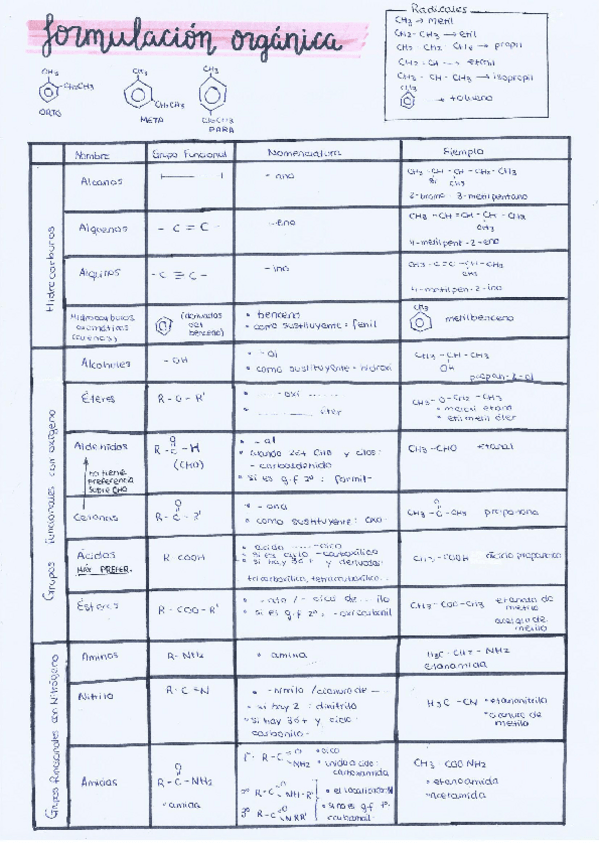 formulación orgánica
Radicales
CH3 → metil
CH2 - CH3 → etil
CH2 CH2 CH3 → propil
CH3 - CH - CH3 → isopropil
CH3
→ tolueno
CH3
CH2CH3
ORTO
CH3
CH2CH3
META
CH3
CH2CH3
PARA
Nombre
Grupo Funcional
Nomenclatura
Ejemplo
Hidrocarburos
Alcanos
- ano
CH3 - CH - CH - CH2 - CH3
Br CH3
2-bromo 3-metilpentano
Alquenos
- C = C -
- eno
CH3 - CH = CH - CH - CH3
CH3
4-metilpent-2-eno
Alquinos
- C ≡ C -
- ino
CH3 - C ≡ C - CH - CH3
CH3
4-metilpen-2-ino
Hidrocarburos
aromáticos
(arenos)
(derivados
del
benceno)
• benceno
• como sustituyente: fenil
CH3
metilbenceno
Grupos funcionales con oxígeno
Alcoholes
- OH
• - ol
• como sustituyente - hidroxi
CH3 - CH - CH3
OH
propan-2-ol
Éteres
R - O - R'
• ...... oxi ......
• ............ éter
CH3 - O - CH2 - CH3
• metoxi etano
• etil metil éter
Aldehídos
no tiene
preferencia
sobre CHO
O
R - C - H
(CHO)
• - al
• cuando 3ó+ CHO y ciclos:
- carbaldehído
• si es g.f 2º: formil-
CH3 - CHO
etanal
Cetonas
O
R - C - R'
• - ona
• como sustituyente: oxo-
O
CH3 - C - CH3
propanona
Ácidos
MÁX PREFER.
R COOH
• ácido ...... - oico
• si es ciclo - carboxílico
• si hay 3ó + y derivados:
tricarboxílico, tetracarboxílico...
COOH
ácido propanoico
Ésteres
R - COO - R'
• - ato / - oico de... ilo
• si es g.f 2º: - oxicarbonil
CH3 - COO - CH3
etanoato de
metilo
acetato de
metilo
Grupos funcionales con Nitrógeno
Aminas
R - NH2
• amina
H3C - CH2 - NH2
etanamida
Nitrilo
R - C ≡ N
• - nitrilo / cianuro de —
• si hay 2: dinitrilo
• si hay 3ó+ y ciclo:
carbonitrilo
H3C - CN
• etanonitrilo
• cianuro de
metilo
Amidas
O
R - C - NH2
- amida
1º R - C O NH2
• oico
• unido a ciclo:
carboxamida
2º R - C O NH - R'
3º R - C O NRR'
• si no es g.f P:
carbamoil
CH3 - COO NH2
• etanoamida
• acetamida